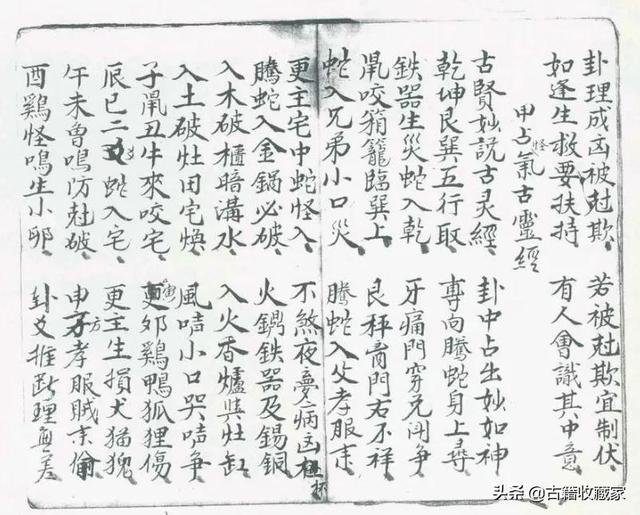 卦理成凶被尅欺 若被尅欺宜制伏
如逢生救要扶持 有人會識其中意
甲占怪氣古靈經
古賢妙説古灵經 卦中占出妙如神
乾坤艮巽五行取 專向騰蛇身上尋
鉄器生災蛇入乾 牙痛門穿兌鬧争
鼡咬箱籠臨巽上 艮秤門右不祥
蛇入兄弟小口災 騰蛇入父孝服来
更主宅中蛇怪入 不煞夜夢病凶
騰蛇入金鍋必破 火鉄器及錫銅
入木破櫃暗溝水 入火香爐與灶缸
入土破灶田宅煥 風唶小口哭唶争
子鼡丑牛來咬宅 卯鷄鴨狐狸傷
辰巳二蛇入宅 更主生損犬猫
午未魯鳴防尅破 申方孝服賊来偷
酉鷄怪鳴生小卵 卦爻推断理無差
头条 @古籍收藏家